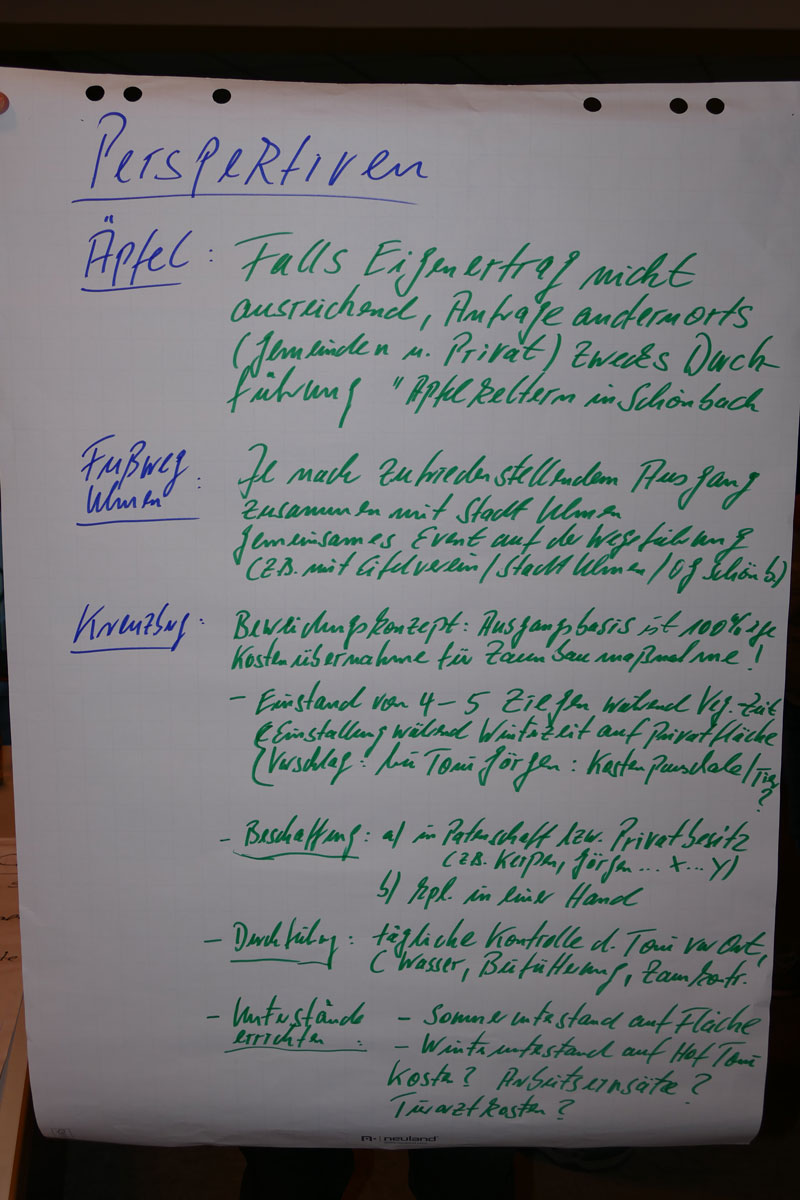 Perspektiven
Äpfel : Falls Eigenertrag nicht
ausreichend, Anfrage andernorts
(Gemeinden u. Privat) zwecks Durch-
führung "Äpfel keltern in Schönbach
Fußweg
Ulmen : Je nach zufriedenstellendem Ausgang
zusammen mit Stadt Ulmen
gemeinsames Event auf der Wegeführung
(z.B. mit Eifelverein / Stadt Ulmen / OG Schönb)
Kreuzbg : Beweidungskonzept : Ausgangsbasis ist 100%ige
Kostenübernahme für Zaunbaumaßnahme !
- Einstand von 4 - 5 Ziegen während Veg.-Zeit
(Einstallung während Winterzeit auf Privatfläche
(Vorschlag : bei Toni Jörgen : Kostenpauschale / Tier
?
- Beschaffung : a) in Patenschaft bzw. Privatbesitz
(z.B. Kerpen, Jörgen ... X ... Y)
b) kpl. in einer Hand
- Durchführg : tägliche Kontrolle d. Toni vor Ort,
( Wasser, Beifütterung, Zaunkontr.
- Unterstände
errichten : - Sommerunterstand auf Fläche
- Winterunterstand auf Hof Toni
Kosten ? Arbeitseinsätze ?
Tierarztkosten ?
neuland